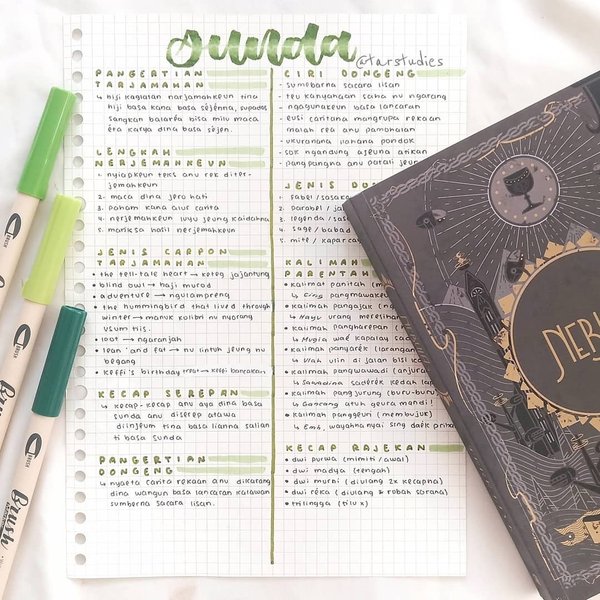 Sunda
@tarstudies
PANGERTIAN
TARJAMAHAN
↳ hiji kagiatan narjamahkeun tina
hiji basa kana basa séjénna, supados
sangkan balaréa bisa milu maca
éta karya dina basa séjén.
LENGKAH
NERJEMAHKEUN
1. nyiapkeun teks anu rek diter-
jemahkeun
2. maca dina jero hati
3. paham kana alur carita
4. nerjemahkeun luyu jeung kaidahna
5. mariksa hasil nerjemahkeun
JENIS CARPON
TARJAMAHAN
• the tell-tale heart → keteg jajantung
• blind owl → haji murod
• adventure → ngulampreng
• the hummingbird that lived through
winter → manuk kolibri nu nyorang
usum tiis.
• loot → ngaranjah
• lean and fat → nu lintuh jeung nu
begang
• keffi's birthday treat → keffi bancakan
KECAP SEREPAN
↳ kecap-kecap anu aya dina basa
sunda anu diserep atawa
diinjeum tina basa lianna salian
ti basa sunda
PANGERTIAN
DONGENG
↳ nyaéta carita rekaan anu dikarang
dina wangun basa lancaran kalawan
sumberna sacara lisan.
CIRI DONGENG
- sumebarna sacara lisan
- teu kanyahoan saha nu ngarang
- ngagunakeun basa lancaran
- eusi caritana mangrupa rekaan
malah rea anu pamohalan
- ukuranana ilaharna pondok
- sok ngandung ajeuna atikan
- pangpangna anu patali jeun
JENIS DO
1. fabel / sasak
2. parabel / ja
3. legenda / sasa
4. sage / babad
5. mite / kaparcay
KALIMAH
PARENTAH
• kalimat panitah (me
↳ Cing pangmawakeu
• kalimah pangajak (ngaj
↳ Hayu urang meresiha
• kalimah pangharepan (
↳ Mugia waé kapalay sad
• kalimah panyarék (larangan
↳ Ulah ulin di jalan bisi ka
• kalimah pangwawadi (anjura
↳ Saéndéna sadérék kedah lap
• kalimah panggurung (buru-buru
↳ Gancang atuh geura mandi!
• kalimah panggeuri (membujuk)
↳ Emb, wayahna nyai sing daék priha
KECAP RAJEKAN
• dwi purwa (mimiti / awal)
• dwi madya (tengah)
• dwi murni (diulang 2x kecapna)
• dwi réka (diulang & robah sorana)
• trilingga (tilu x)
Brush
NER